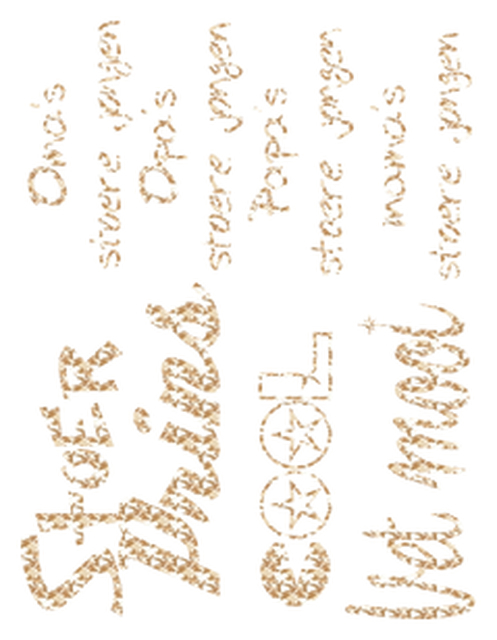 Oma's
stoere jongen
Opa's
stoere jongen
Papa's
stoere jongen
mama's
stoere jongen
StoER
COOL
Wat mooi